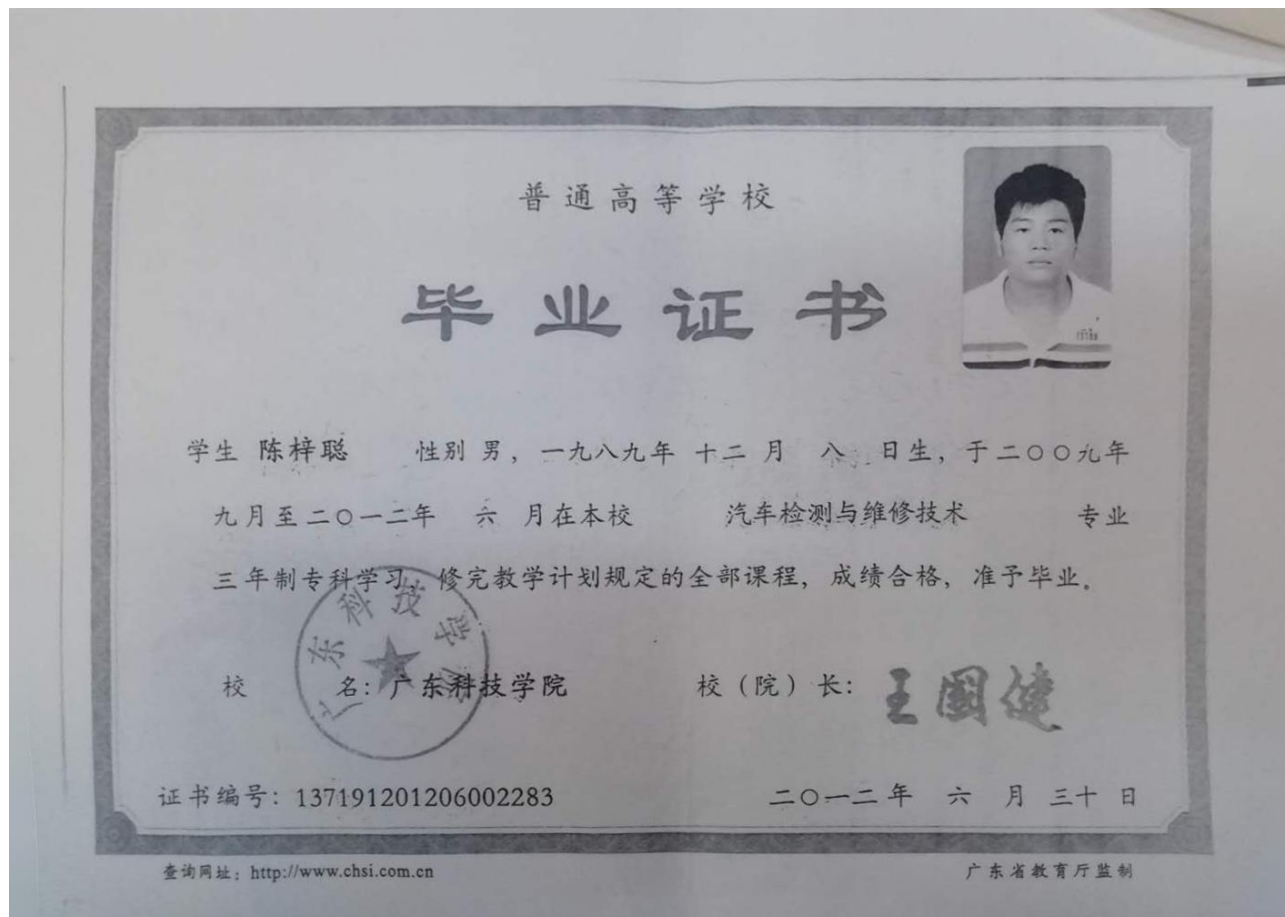 普通高等学校
毕业证书
学生 陈梓聪 性别 男，一九八九年 十二 月 八 日生，于二〇〇九年
九月至二〇一二年 六 月在本校 汽车检测与维修技术 专业
三年制专科学习，修完教学计划规定的全部课程，成绩合格，准予毕业。
广东科技学院
校 名：广东科技学院 校（院）长：王國健
证书编号：137191201206002283 二〇一二年 六 月 三十 日
查询网址：http://www.chsi.com.cn 广东省教育厅监制